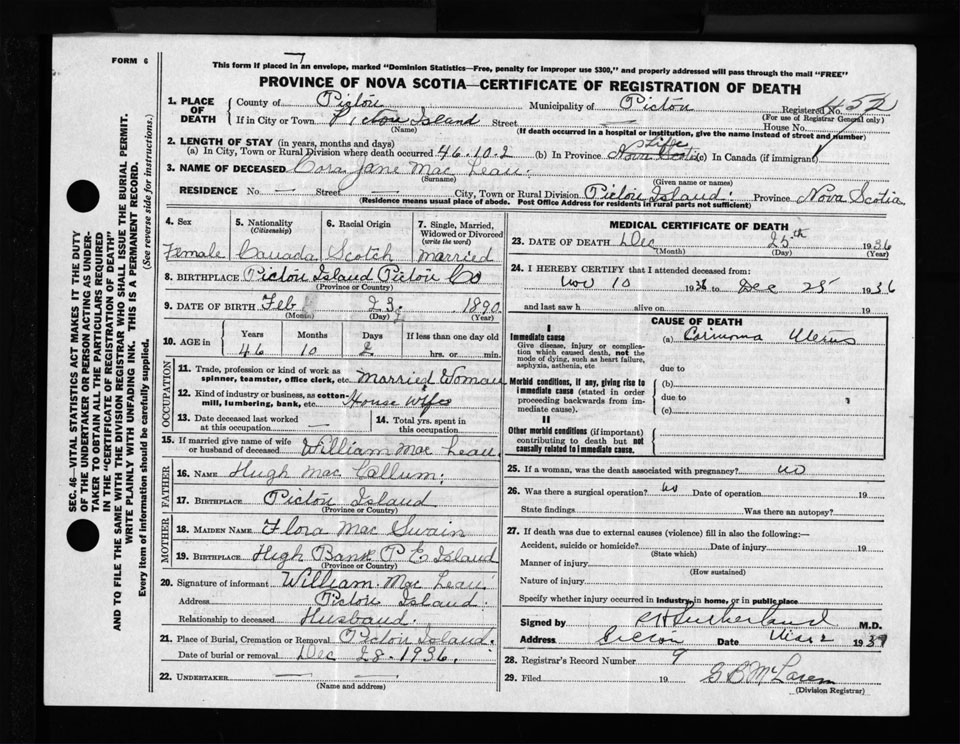 FORM 6
This form if placed in an envelope, marked "Dominion Statistics—Free, penalty for improper use $300," and properly addressed will pass through the mail "FREE"
PROVINCE OF NOVA SCOTIA—CERTIFICATE OF REGISTRATION OF DEATH
1. PLACE OF DEATH
County of Pictou Municipality of Pictou Registered No. 452
(For use of Registrar General only)
If in City or Town Pictou Island Street — House No.
(Name) (If death occurred in a hospital or institution, give the name instead of street and number)
2. LENGTH OF STAY (in years, months and days)
(a) In City, Town or Rural Division where death occurred 46.10.2 (b) In Province life Nova Scotia (c) In Canada (if immigrant)
3. NAME OF DECEASED Cora Jane Mac Lean.
(Surname) (Given name or names)
RESIDENCE No. — Street — City, Town or Rural Division Pictou Island. Province Nova Scotia
(Residence means usual place of abode. Post Office Address for residents in rural parts not sufficient)
4. Sex
Female
5. Nationality
(Citizenship)
Canada
6. Racial Origin
Scotch
7. Single, Married, Widowed or Divorced
(write the word)
Married
8. BIRTHPLACE Pictou Island Pictou Co
(Province or Country)
9. DATE OF BIRTH Feb 23 1890
(Month) (Day) (Year)
10. AGE in
Years Months Days If less than one day old
46 10 2 hrs. or min.
OCCUPATION
11. Trade, profession or kind of work as spinner, teamster, office clerk, etc. Married Woman
12. Kind of industry or business, as cotton-mill, lumbering, bank, etc. House Wife
13. Date deceased last worked at this occupation —
14. Total yrs. spent in this occupation —
15. If married give name of wife or husband of deceased William Mac Lean.
FATHER
16. NAME Hugh Mac Callum.
17. BIRTHPLACE Pictou Island
MOTHER
18. MAIDEN NAME Flora Mac Swain
19. BIRTHPLACE High Bank P E Island
(Province or Country)
20. Signature of informant William Mac Lean
Address Pictou Island.
Relationship to deceased Husband.
21. Place of Burial, Cremation or Removal Pictou Island.
Date of burial or removal Dec 28. 1936.
22. UNDERTAKER — —
(Name and address)
MEDICAL CERTIFICATE OF DEATH
23. DATE OF DEATH Dec 25th 1936
(Month) (Day) (Year)
24. I HEREBY CERTIFY that I attended deceased from:
Nov 10 1936 to Dec 25 1936
and last saw h alive on 19
CAUSE OF DEATH
I
Immediate cause
Give disease, injury or complication which caused death, not the mode of dying, such as heart failure, asphyxia, asthenia, etc
(a) Uterus
due to
Morbid conditions, if any, giving rise to immediate cause (stated in order proceeding backwards from immediate cause).
(b)
due to
(c)
II
Other morbid conditions (if important) contributing to death but not causally related to immediate cause.
25. If a woman, was the death associated with pregnancy? no
26. Was there a surgical operation? no Date of operation 19
State findings Was there an autopsy?
27. If death was due to external causes (violence) fill in also the following:—
Accident, suicide or homicide? Date of injury 19
(State which)
Manner of injury
(How sustained)
Nature of injury
Specify whether injury occurred in industry, in home, or in public place
Signed by Sutherland M.D.
Address Pictou Date 1937
28. Registrar's Record Number 9
29. Filed 19 G B McLaren
(Division Registrar)
SEC. 46—VITAL STATISTICS ACT MAKES IT THE DUTY OF THE UNDERTAKER OR PERSON ACTING AS UNDERTAKER TO OBTAIN ALL THE PARTICULARS REQUIRED IN THE "CERTIFICATE OF REGISTRATION OF DEATH" AND TO FILE THE SAME WITH THE DIVISION REGISTRAR WHO SHALL ISSUE THE BURIAL PERMIT.
WRITE PLAINLY WITH UNFADING INK. THIS IS A PERMANENT RECORD.
Every item of information should be carefully supplied. (See reverse side for instructions.)